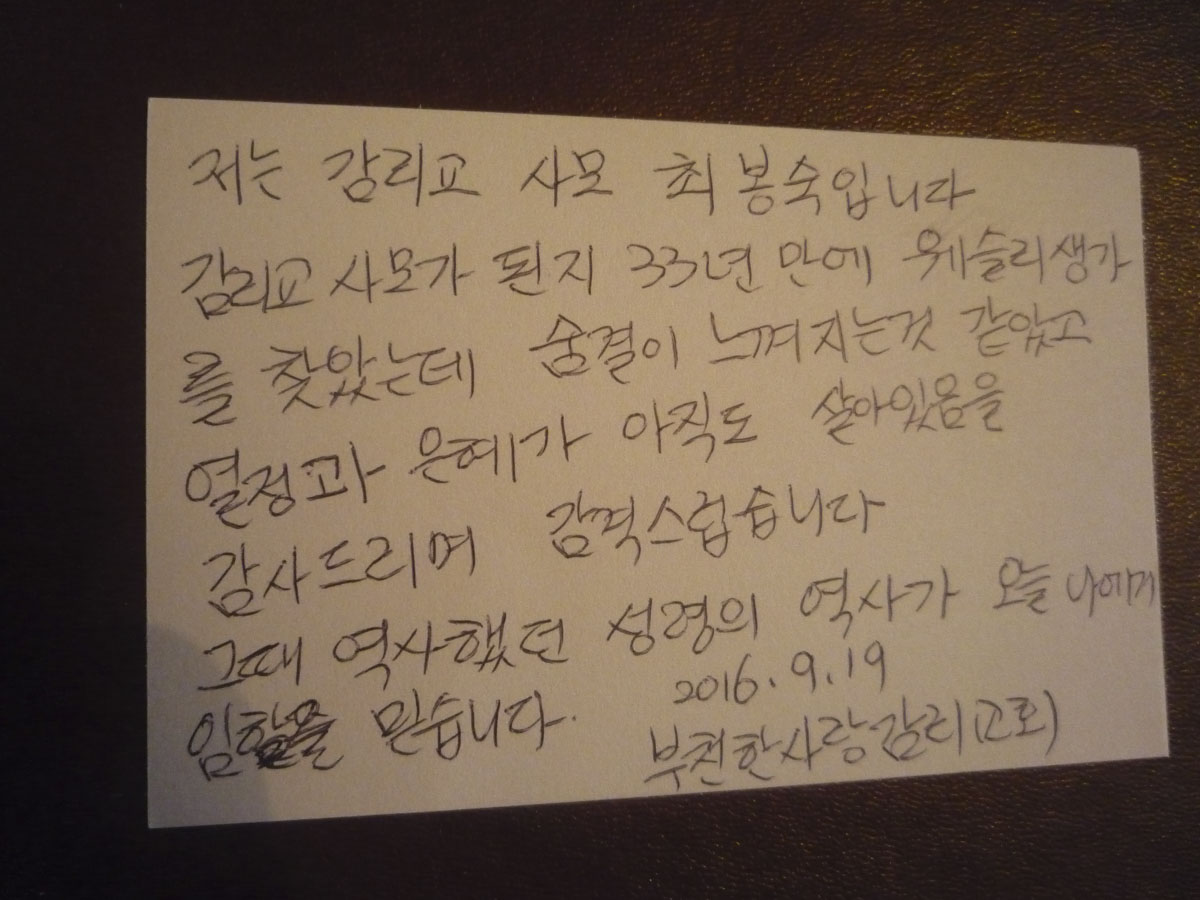 저는 감리교 사모 최봉숙입니다
감리교 사모가 된지 33년 만에 웨슬리생가
를 찾았는데 숨결이 느껴지는것 같았고
열정과 은혜가 아직도 살아있음을
감사드리며 감격스럽습니다
그때 역사했던 성령의 역사가 오늘 나에게
임함을 믿습니다.
2016.9.19
부천한사랑감리(교회)